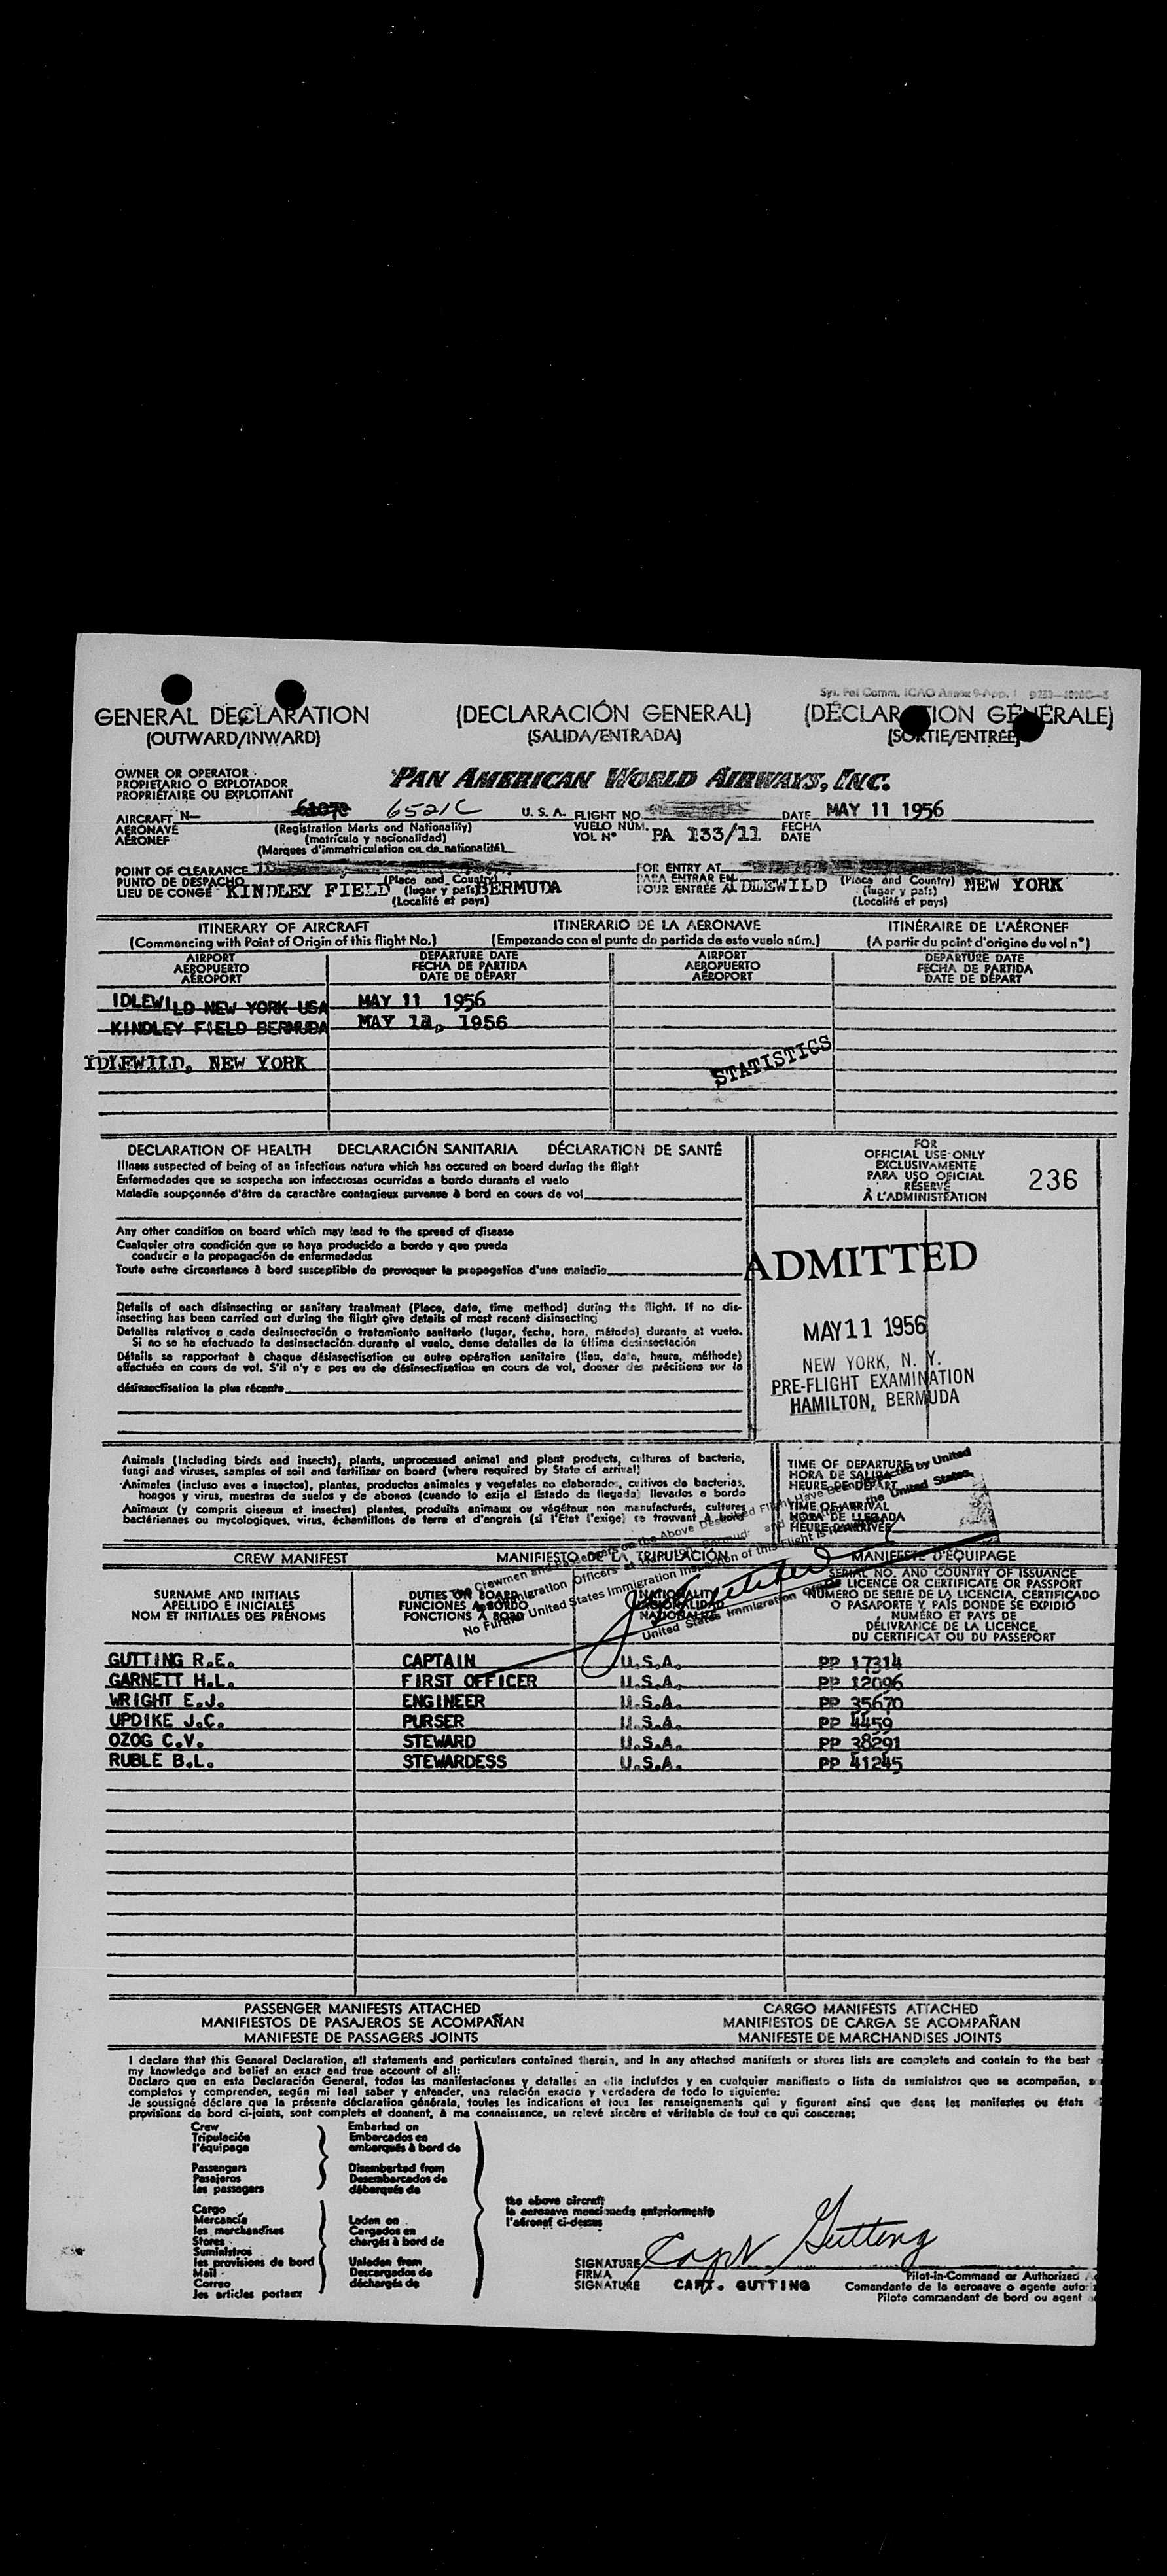 Sys. Fal Comm. ICAO Annex 9-App. 1
GENERAL DECLARATION (DECLARACIÓN GENERAL) (DÉCLARATION GÉNÉRALE)
(OUTWARD/INWARD) (SALIDA/ENTRADA) (SORTIE/ENTRÉE)
OWNER OR OPERATOR
PROPIETARIO O EXPLOTADOR
PROPRIÉTAIRE OU EXPLOITANT
PAN AMERICAN WORLD AIRWAYS, INC.
AIRCRAFT N- 6521C U. S. A. FLIGHT NO. DATE MAY 11 1956
AERONAVE (Registration Marks and Nationality) VUELO NÚM. PA 133/11 FECHA
AÉRONEF (matrícula y nacionalidad) VOL Nº DATE
(Marques d'immatriculation ou de nationalité)
POINT OF CLEARANCE FOR ENTRY AT
PUNTO DE DESPACHO (Place and Country) PARA ENTRAR EN (Place and Country)
LIEU DE CONGÉ KINDLEY FIELD (lugar y país) BERMUDA POUR ENTRÉE A IDLEWILD (lugar y país) NEW YORK
(Localité et pays) (Localité et pays)
ITINERARY OF AIRCRAFT ITINERARIO DE LA AERONAVE ITINÉRAIRE DE L'AÉRONEF
(Commencing with Point of Origin of this flight No.) (Empezando con el punto de partida de este vuelo núm.) (A partir du point d'origine du vol nº)
AIRPORT DEPARTURE DATE AIRPORT DEPARTURE DATE
AEROPUERTO FECHA DE PARTIDA AEROPUERTO FECHA DE PARTIDA
AÉROPORT DATE DE DÉPART AÉROPORT DATE DE DÉPART
IDLEWILD NEW YORK USA MAY 11 1956
KINDLEY FIELD BERMUDA MAY 11, 1956
IDLEWILD, NEW YORK
STATISTICS
DECLARATION OF HEALTH DECLARACIÓN SANITARIA DÉCLARATION DE SANTÉ
Illness suspected of being of an infectious nature which has occured on board during the flight
Enfermedades que se sospecha son infecciosas ocurridas a bordo durante el vuelo
Maladie soupçonnée d'être de caractère contagieux survenue à bord en cours de vol
Any other condition on board which may lead to the spread of disease
Cualquier otra condición que se haya producido a bordo y que pueda
conducir a la propagación de enfermedades
Toute autre circonstance à bord susceptible de provoquer la propagation d'une maladie
Details of each disinsecting or sanitary treatment (Place, date, time method) during the flight. If no dis-
insecting has been carried out during the flight give details of most recent disinsecting
Detalles relativos a cada desinsectación o tratamiento sanitario (lugar, fecha, hora, método) durante el vuelo.
Si no se ha efectuado la desinsectación durante el vuelo, dense detalles de la última desinsectación
Détails se rapportant à chaque désinsectisation ou autre opération sanitaire (lieu, date, heure, méthode)
effectuée en cours de vol. S'il n'y a pas eu de désinsectisation en cours de vol, donner des précisions sur la
désinsectisation la plus récente
FOR
OFFICIAL USE ONLY
EXCLUSIVAMENTE
PARA USO OFICIAL
RÉSERVÉ
À L'ADMINISTRATION
236
ADMITTED
MAY 11 1956
NEW YORK, N. Y.
PRE-FLIGHT EXAMINATION
HAMILTON, BERMUDA
Animals (Including birds and insects), plants, unprocessed animal and plant products, cultures of bacteria,
fungi and viruses, samples of soil and fertilizer on board (where required by State of arrival)
Animales (incluso aves e insectos), plantas, productos animales y vegetales no elaborados, cultivos de bacterias,
hongos y virus, muestras de suelos y de abonos (cuando lo exija el Estado de llegada) llevados a bordo
Animaux (y compris oiseaux et insectes) plantes, produits animaux ou végétaux non manufacturés, cultures
bactériennes ou mycologiques, virus, échantillons de terre et d'engrais (si l'Etat l'exige) se trouvant à bord
TIME OF DEPARTURE
HORA DE SALIDA
HEURE DE DÉPART
TIME OF ARRIVAL
HORA DE LLEGADA
HEURE D'ARRIVÉE
The Crewmen and Passengers on the Above Described Flight Have Been Inspected by United
No Further United States Immigration Inspection of this Flight is
United States Immigration
CREW MANIFEST MANIFIESTO DE LA TRIPULACIÓN MANIFESTE D'ÉQUIPAGE
SURNAME AND INITIALS
APELLIDO E INICIALES
NOM ET INITIALES DES PRÉNOMS
DUTIES ON BOARD
FUNCIONES A BORDO
FONCTIONS À BORD
NATIONALITY
NACIONALIDAD
NATIONALITÉ
SERIAL NO. AND COUNTRY OF ISSUANCE
LICENCE OR CERTIFICATE OR PASSPORT
NÚMERO DE SERIE DE LA LICENCIA, CERTIFICADO
O PASAPORTE Y PAÍS DONDE SE EXPIDIÓ
NUMÉRO ET PAYS DE
DÉLIVRANCE DE LA LICENCE,
DU CERTIFICAT OU DU PASSEPORT
GUTTING R.E. CAPTAIN U.S.A. PP 17314
GARNETT H.L. FIRST OFFICER U.S.A. PP 12096
WRIGHT E.J. ENGINEER U.S.A. PP 35670
UPDIKE J.C. PURSER U.S.A. PP 4459
OZOG C.V. STEWARD U.S.A. PP 38291
RUBLE B.L. STEWARDESS U.S.A. PP 41245
PASSENGER MANIFESTS ATTACHED CARGO MANIFESTS ATTACHED
MANIFIESTOS DE PASAJEROS SE ACOMPAÑAN MANIFIESTOS DE CARGA SE ACOMPAÑAN
MANIFESTE DE PASSAGERS JOINTS MANIFESTE DE MARCHANDISES JOINTS
I declare that this General Declaration, all statements and particulars contained therein, and in any attached manifests or stores lists are complete and contain to the best
my knowledge and belief an exact and true account of all:
Declaro que en esta Declaración General, todas las manifestaciones y detalles en ella incluídos y en cualquier manifiesto o lista de suministros que se acompañan,
completos y comprenden, según mi leal saber y entender, una relación exacta y verdadera de todo lo siguiente:
Je soussigné déclare que la présente déclaration générale, toutes les indications et tous les renseignements qui y figurent ainsi que dans les manifestes ou états
provisions de bord ci-joints, sont complets et donnent, à ma connaissance, un relevé sincère et véritable de tout ce qui concerne:
Crew Embarked on
Tripulación Embarcados en
l'équipage embarqués à bord de
Passengers Disembarked from
Pasajeros Desembarcados de
les passagers débarqués de
Cargo
Mercancía Laden on
les marchandises Cargados en
Stores chargés à bord de
Suministros
les provisions de bord Unladen from
Mail Descargados de
Correo déchargés de
les articles postaux
the above aircraft
la aeronave mencionada anteriormente
l'aéronef ci-dessus
SIGNATURE Capt Gutting
FIRMA Pilot-in-Command or Authorized
SIGNATURE CAPT. GUTTING Comandante de la aeronave o agente
Pilote commandant de bord ou agent